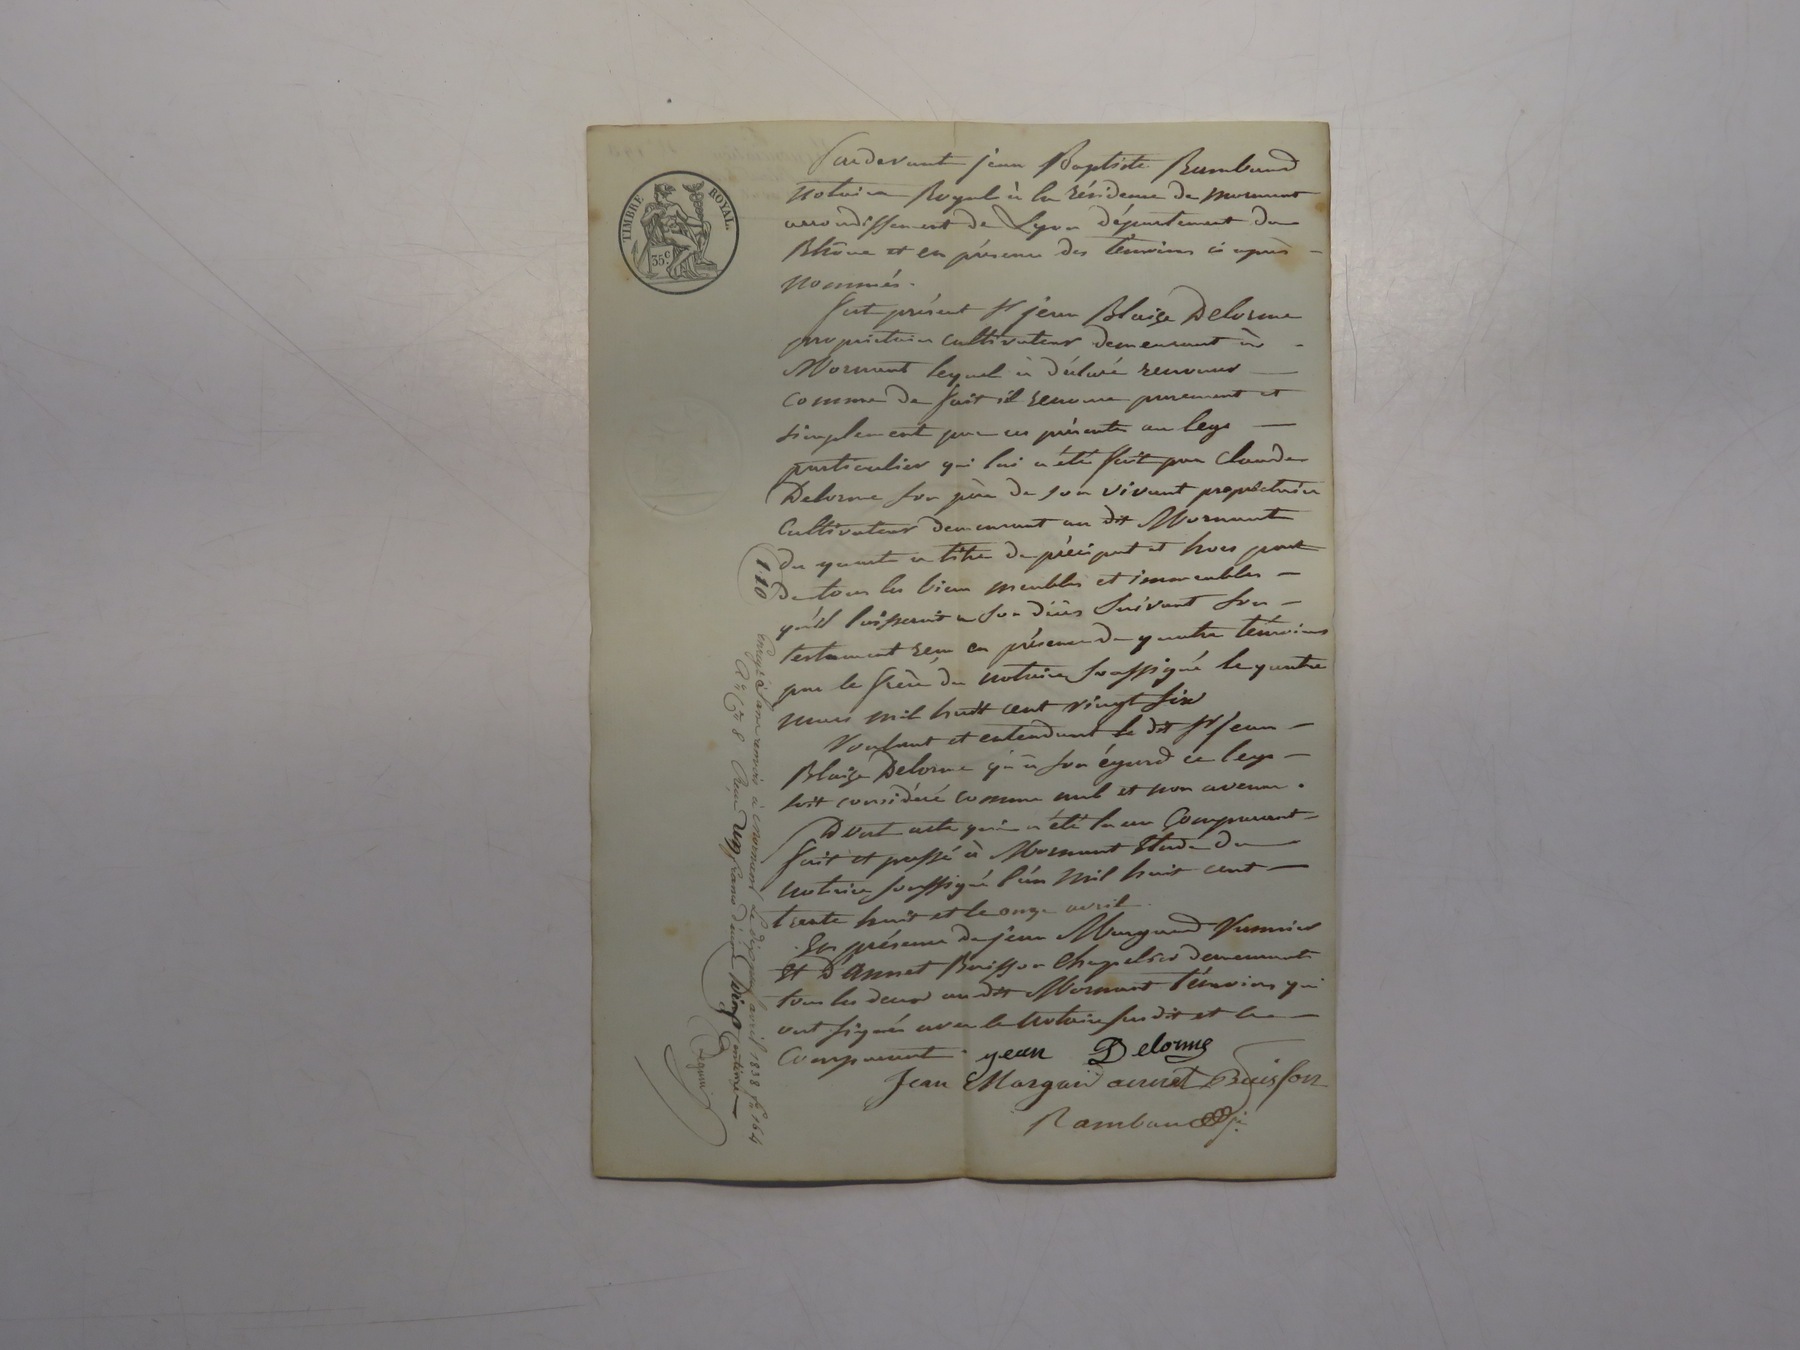 TIMBRE ROYAL
35 c.
Pardevant jean Baptiste Rambaud
notaire Royal à la résidence de mornant
arrondissement de Lyon département du
Rhône et en présence des témoins ci après -
nommés.
fut présent Sr jean Blaize Delorme
propriétaire cultivateur demeurant à -
Mornant lequel à déclaré renoncer -
comme de fait il renonce purement et
simplement par ces présentes au legs -
particulier qui lui a été fait par Claude
Delorme son père de son vivant propriétaire
Cultivateur demeurant au dit Mornant
du quart a titre de préciput et hors part
de tous les biens meubles et immeubles -
qu'il laisserait a son décès suivant son -
testament reçu en présence de quatre témoins
par le frère du notaire soussigné le quatre
mars mil huit cent vingt six
Voulant et entendant le dit Sr Jean -
Blaize Delorme qu'à son égard ce legs -
soit considéré comme nul et non avenu.
Dont acte qui a été lu au Comparant -
fait et passé à Mornant Etude du
notaire soussigné l'an mil huit cent -
trente huit et le onze avril.
En présence de jean Margand Vannier
Et D'annet Buisson Chapelier demeurants
tous les deux au dit Mornant témoins qui
ont signés avec le Notaire susdit et le -
Comparant. jean Delorme
Jean Margan annet Buisson
Rambaud
110
à Mornant Le avril 1838 fo 164
Ro Co 8 Reçu un franc dixme Dix Centimes